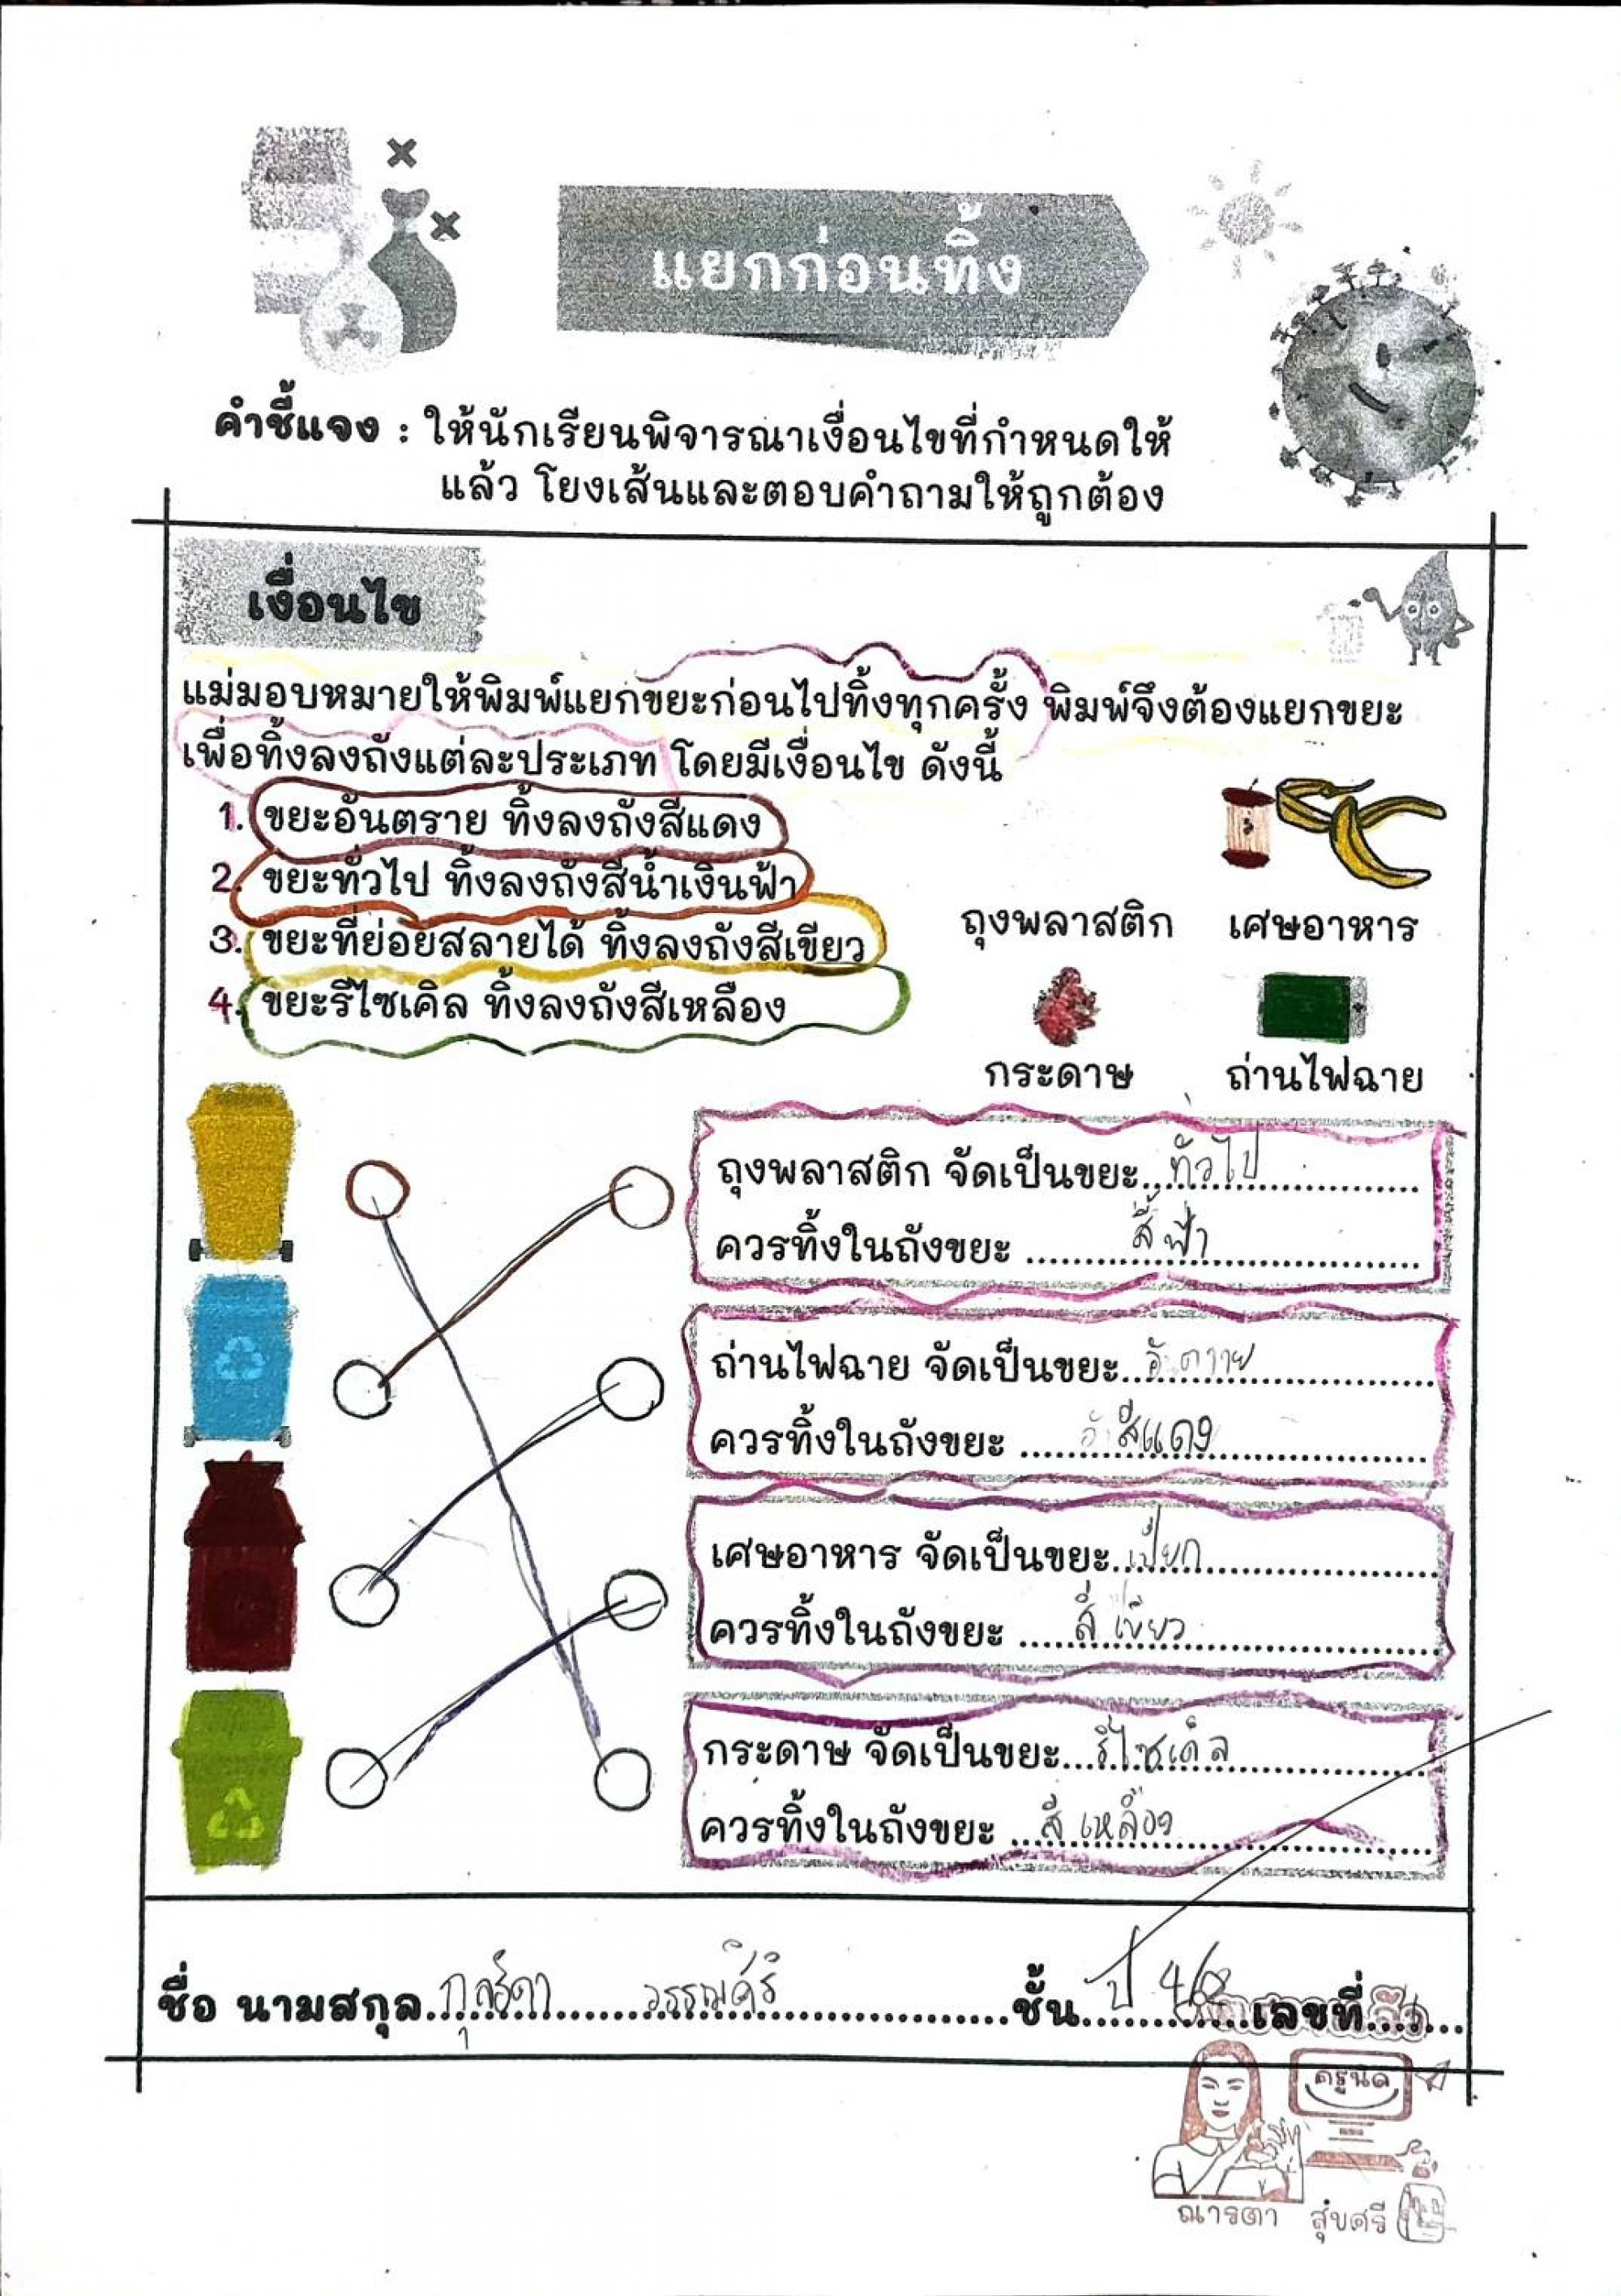 แยกก่อนทิ้ง
คำชี้แจง : ให้นักเรียนพิจารณาเงื่อนไขที่กำหนดให้
แล้ว โยงเส้นและตอบคำถามให้ถูกต้อง
เงื่อนไข
แม่มอบหมายให้พิมพ์แยกขยะก่อนไปทิ้งทุกครั้ง พิมพ์จึงต้องแยกขยะ
เพื่อทิ้งลงถังแต่ละประเภท โดยมีเงื่อนไข ดังนี้
1. ขยะอันตราย ทิ้งลงถังสีแดง
2. ขยะทั่วไป ทิ้งลงถังสีน้ำเงินฟ้า
3. ขยะที่ย่อยสลายได้ ทิ้งลงถังสีเขียว
4. ขยะรีไซเคิล ทิ้งลงถังสีเหลือง
ถุงพลาสติก เศษอาหาร
กระดาษ ถ่านไฟฉาย
ถุงพลาสติก จัดเป็นขยะ ทั่วไป
ควรทิ้งในถังขยะ สีฟ้า
ถ่านไฟฉาย จัดเป็นขยะ
ควรทิ้งในถังขยะ สีแดง
เศษอาหาร จัดเป็นขยะ เปียก
ควรทิ้งในถังขยะ สีเขียว
กระดาษ จัดเป็นขยะ รีไซเคิล
ควรทิ้งในถังขยะ สีเหลือง
ชื่อ นามสกุล ชั้น ป 4/8 เลขที่
ครูนิด
ณารตา สุขศรี